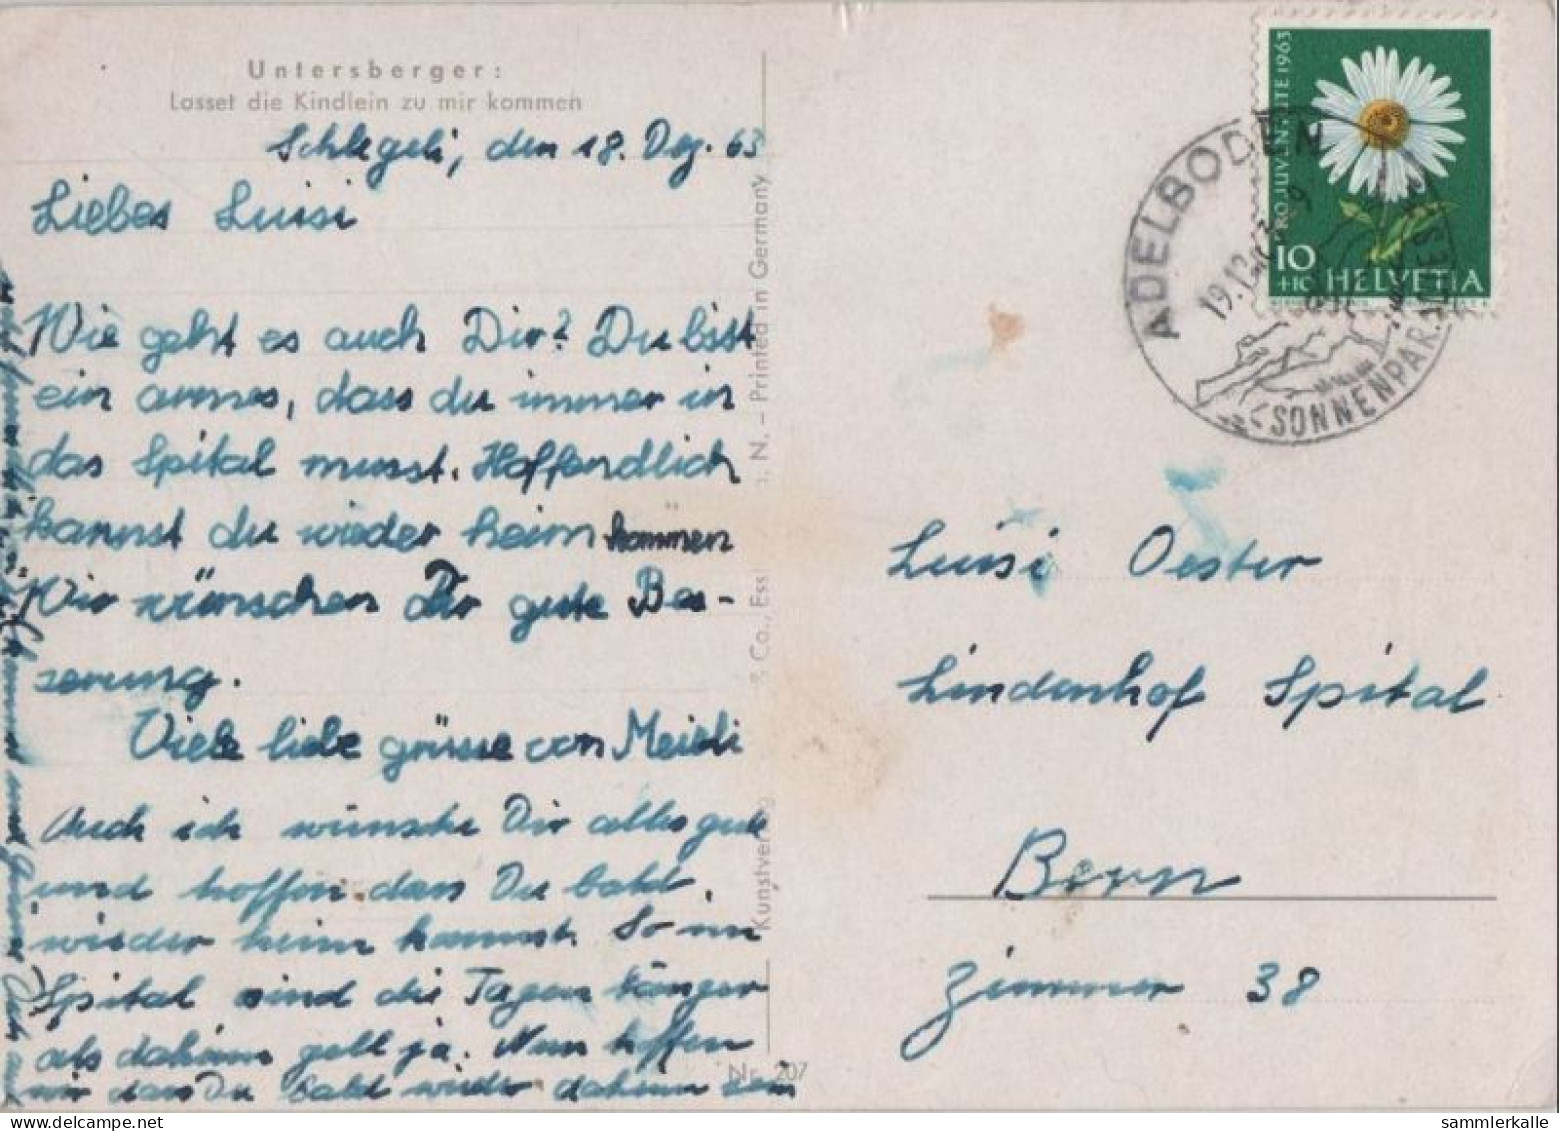 Untersberger:
Lasset die Kindlein zu mir kommen
Schlegeli, den 18. Dez. 63
Liebes Luisi
Wie geht es auch Dir? Du bist
ein armes, dass du immer in
das Spital musst. Hoffendlich
kannst du wieder heim kommen
Wir wünschen Dir gute Bes-
serung.
Viele liebe grüsse von Meieli
Auch ich wünsche Dir alles gute
und hoffen dass Du bald
wieder heim kannst. So im
Spital sind die Tagen länger
als daheim gell ja. Nun hoffen
wir dass Du bald wieder daheim
Kunstver
& Co., Ess
. N. – Printed in Germany
Nr. 207
PRO JUVENTUTE 1963
10
+10
HELVETIA
ADELBODEN
19.12.63
SONNENPAR
Luisi Oester
Lindenhof Spital
Bern
Zimmer 38
sammlerkalle